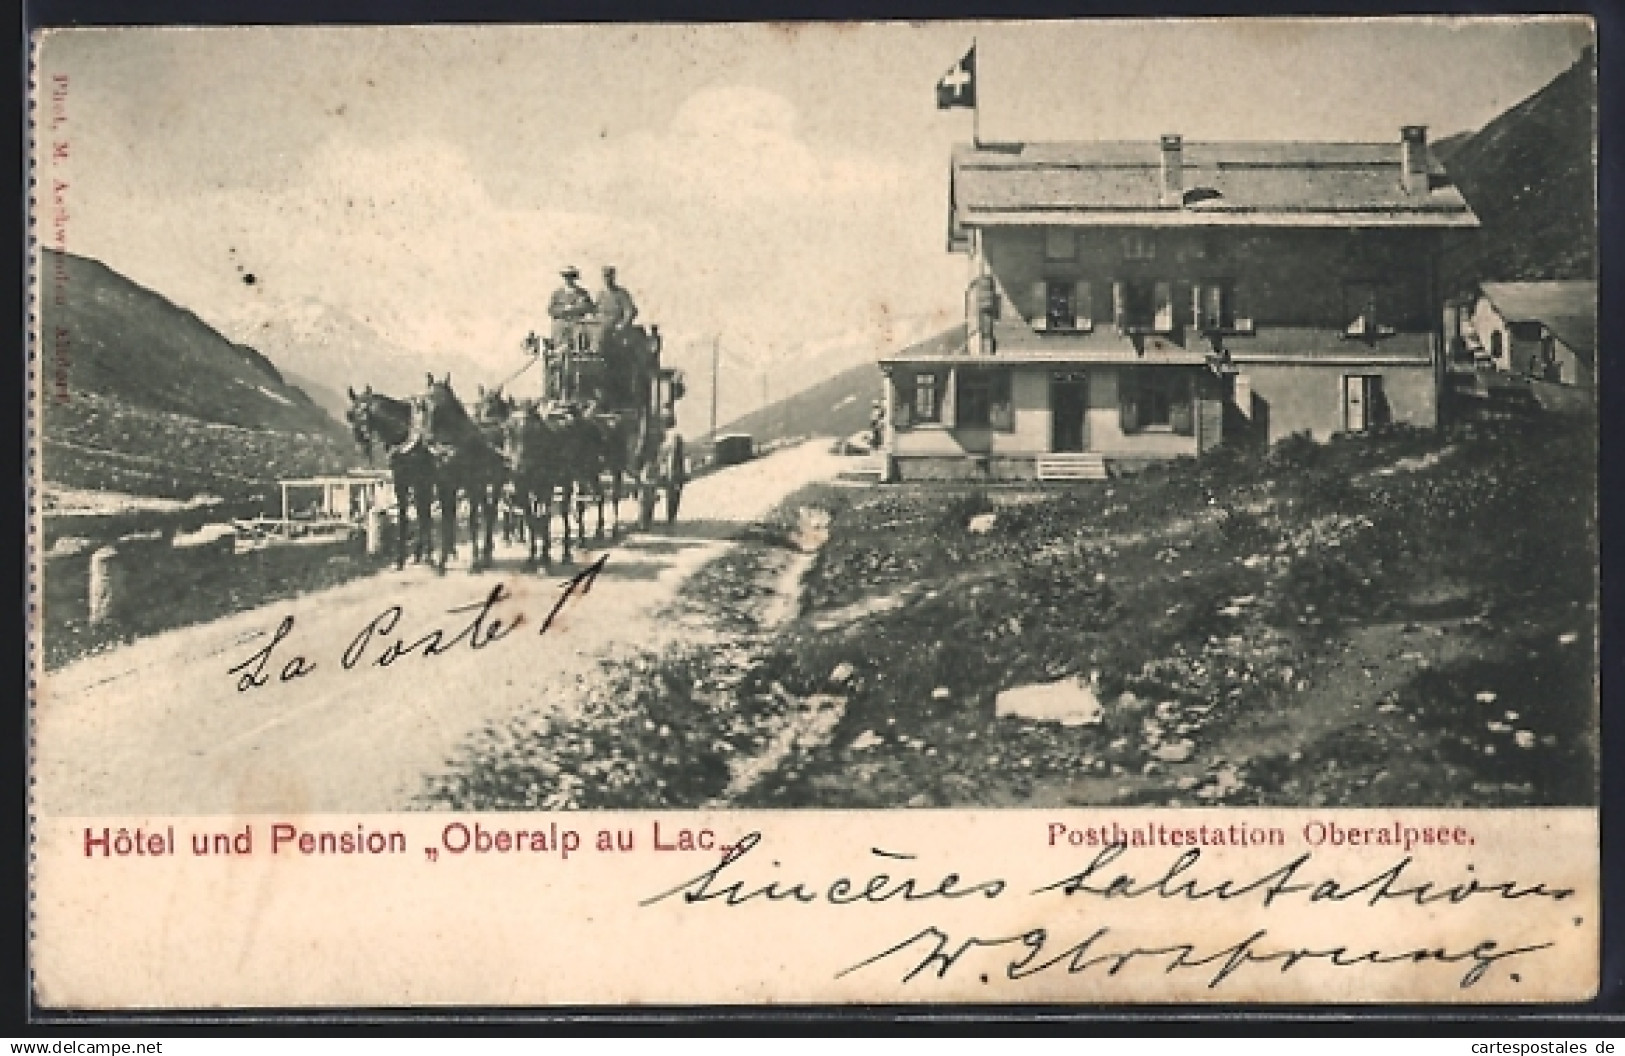 Phot. M. Aschwanden Altdorf.
La Poste
Hôtel und Pension „Oberalp au Lac„
Posthaltestation Oberalpsee.
Sincères Salutations
W.
cartespostales de